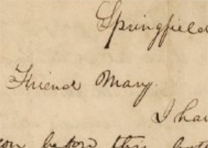 Springfield
Friend Mary.
I hav
before this